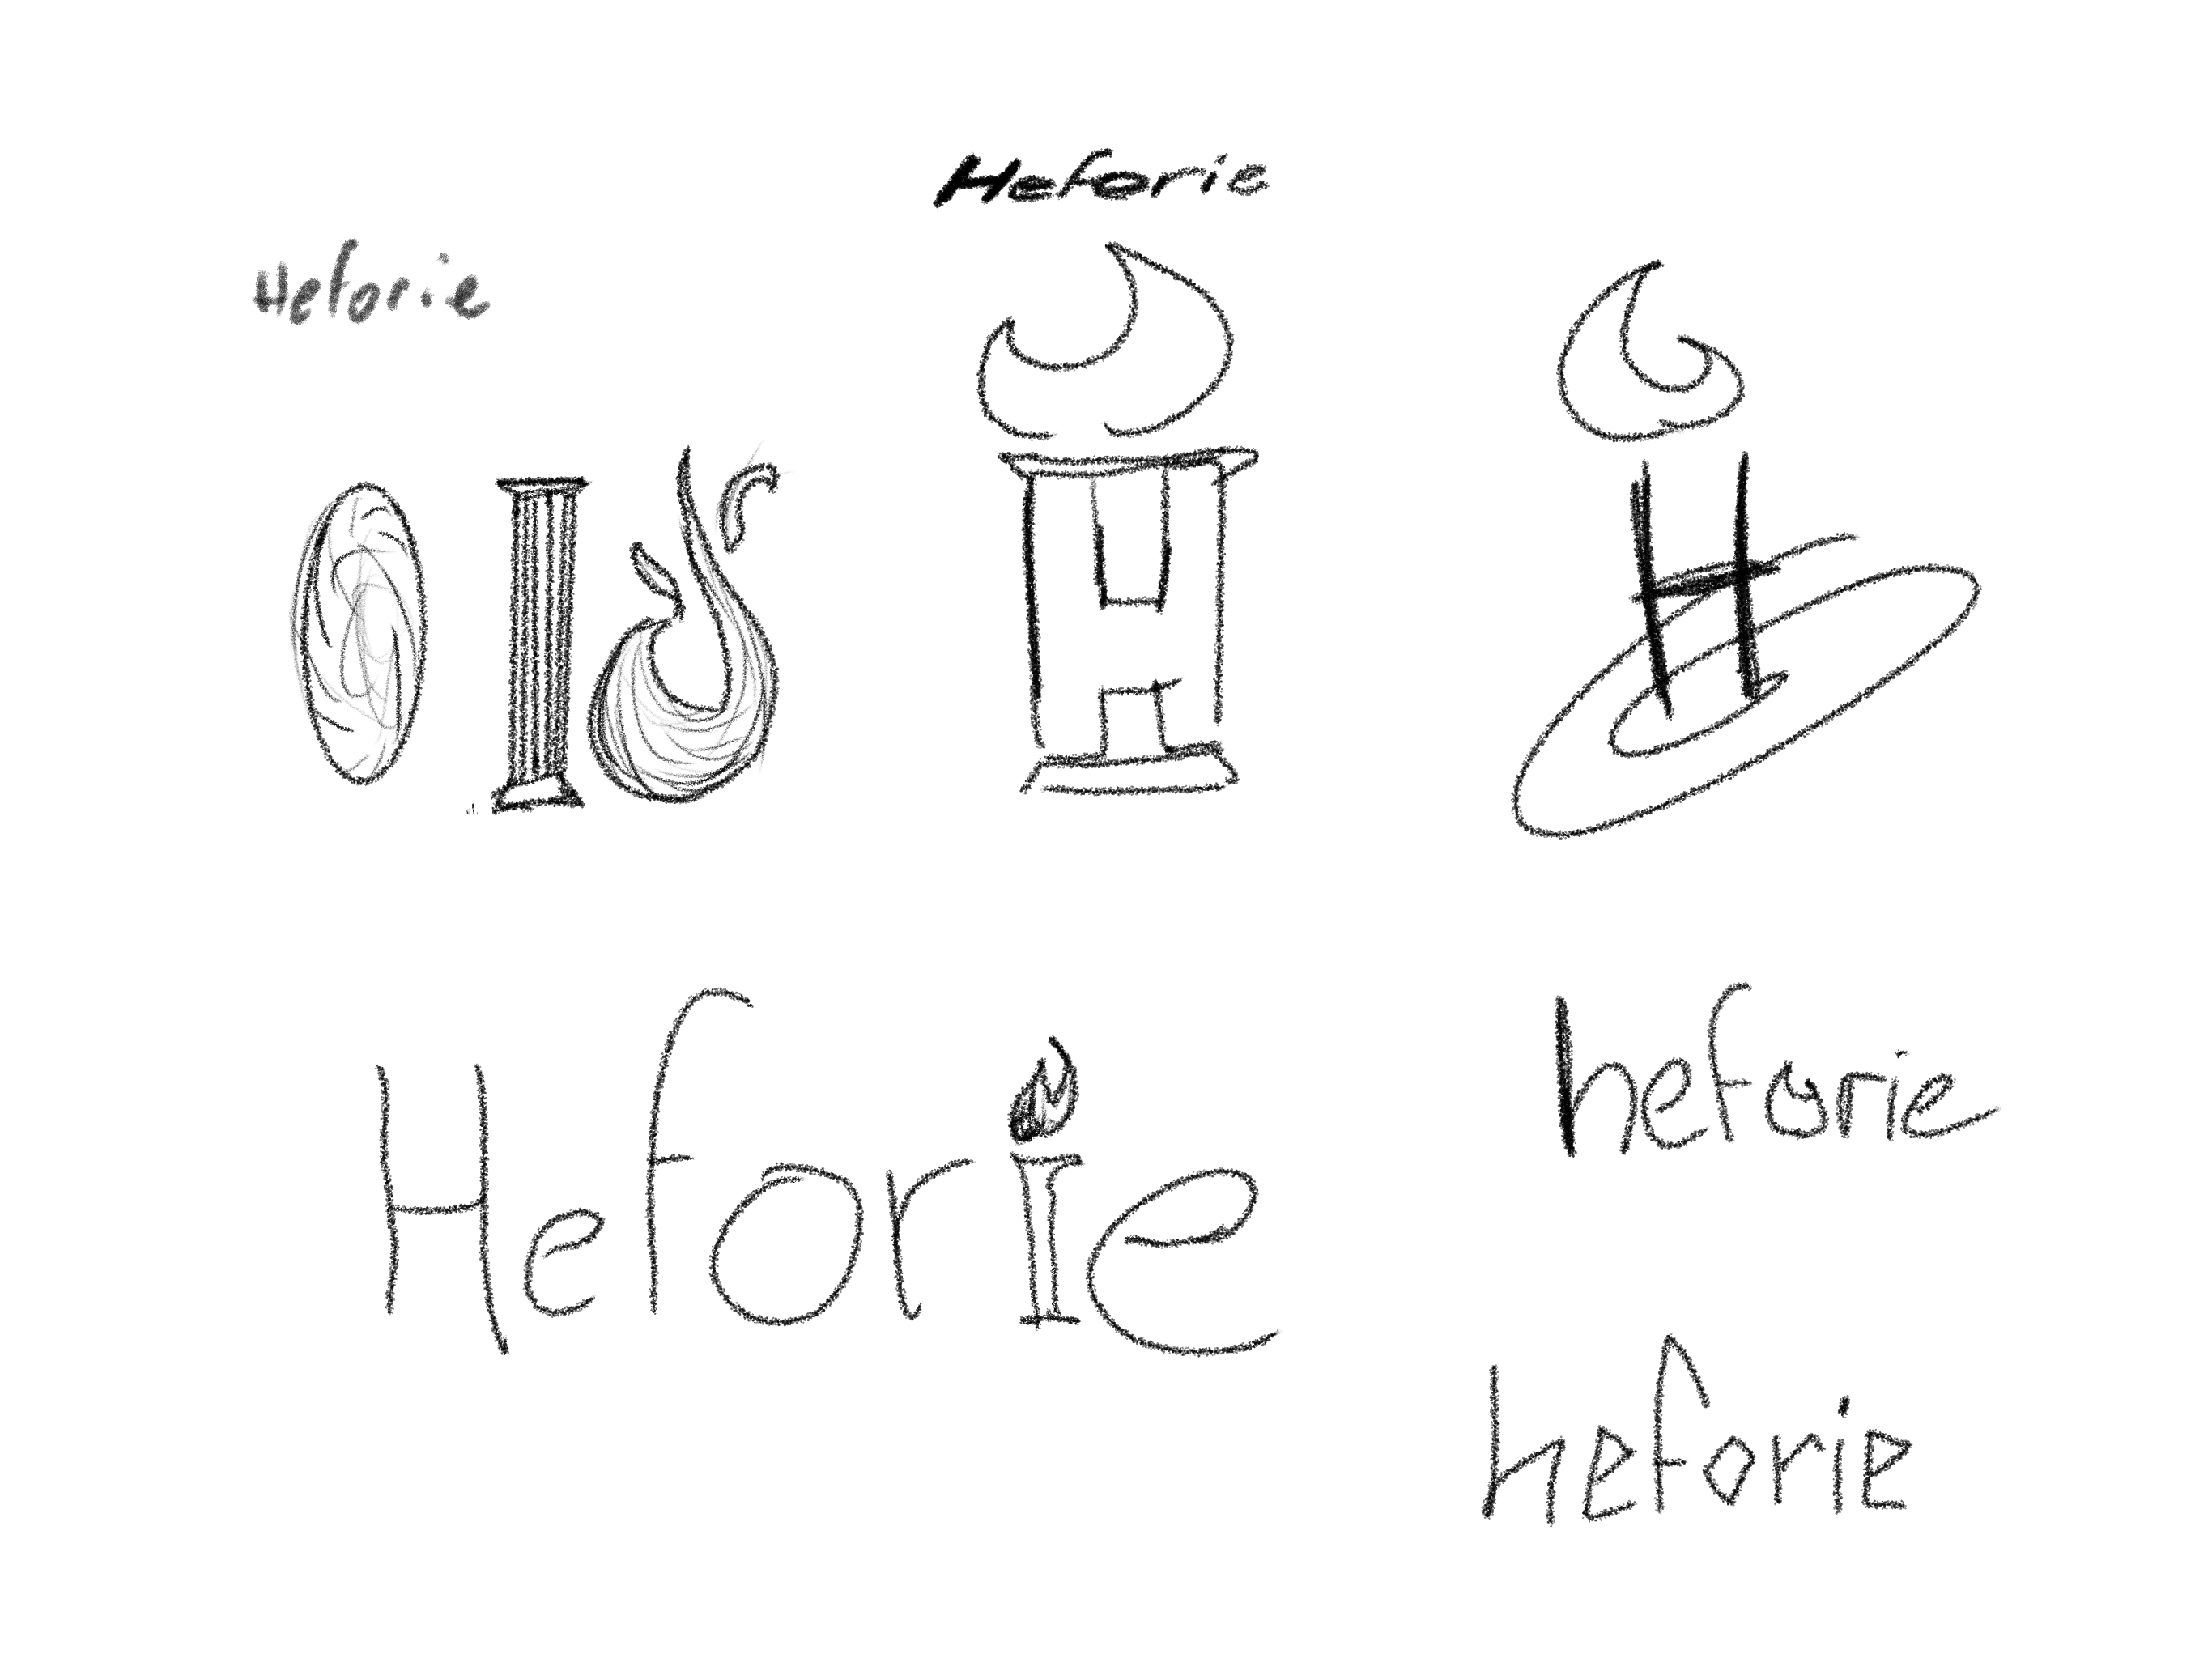 Heforie
Heforie
H
H
Heforie
heforie
heforie